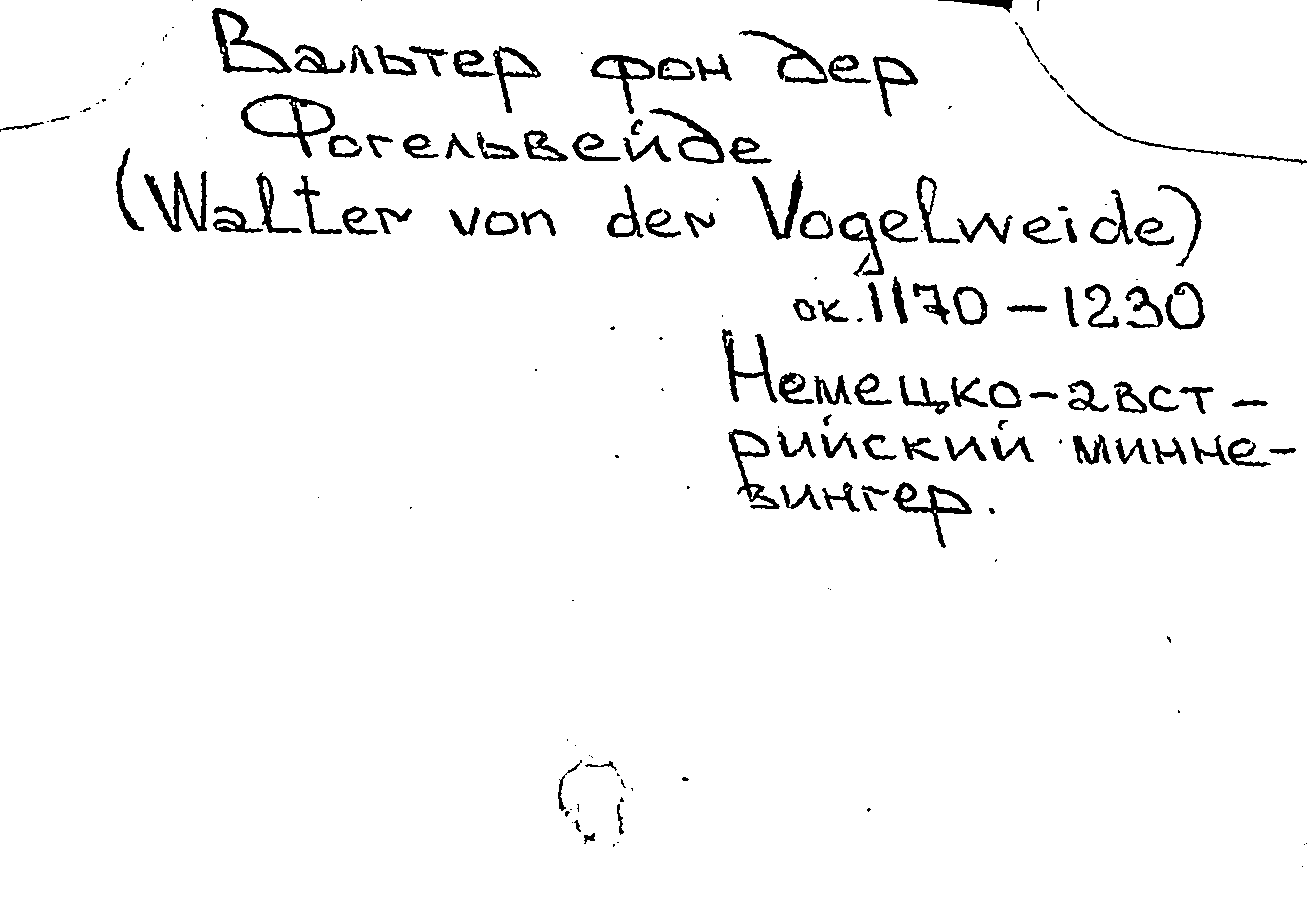 Вальтер фон дер
Фогельвейде
(Walter von der Vogelweide)
ок. 1170 – 1230
Немецко-авст-
рийский минне-
зингер.